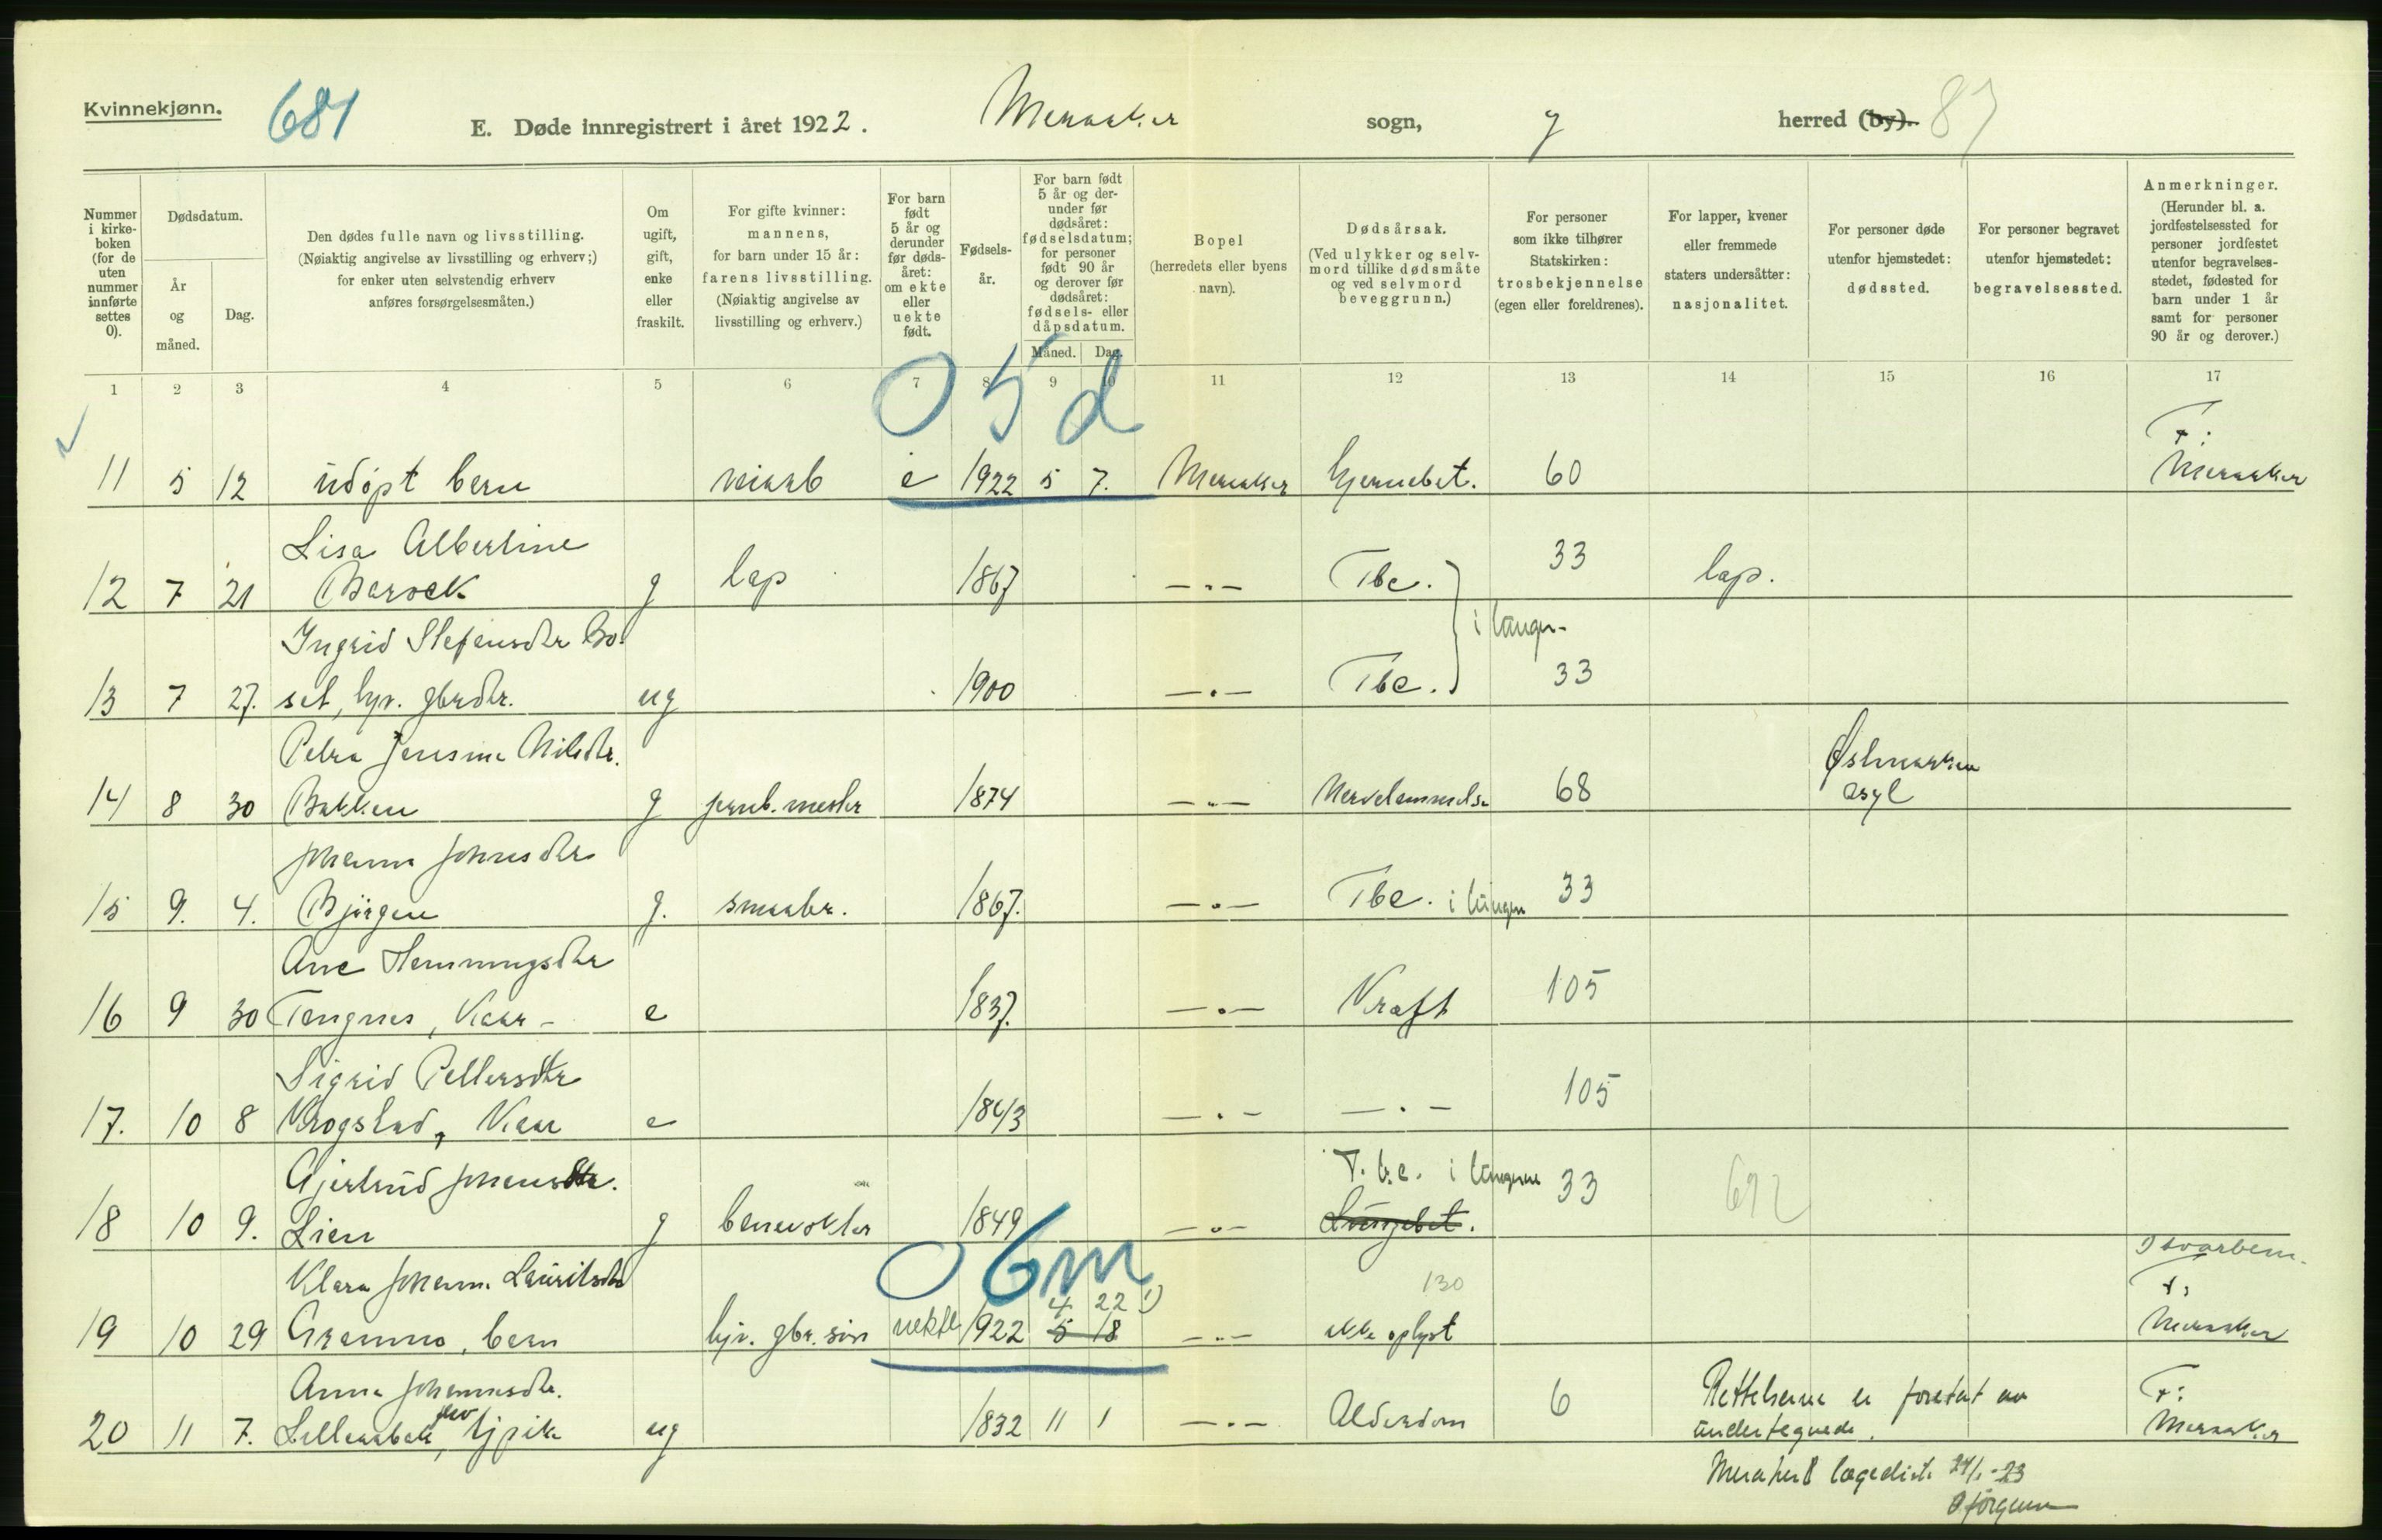 Kvinnekjønn.
681
E. Døde innregistrert i året 1922. Meraker sogn, herred (by). 87
Nummer i kirkeboken (for de uten nummer innførte settes 0).
Dødsdatum.
År og måned.
Dag.
Den dødes fulle navn og livsstilling.
(Nøiaktig angivelse av livsstilling og erhverv;)
for enker uten selvstendig erhverv
anføres forsørgelsesmåten.)
Om ugift, gift, enke eller fraskilt.
For gifte kvinner: mannens, for barn under 15 år: farens livsstilling. (Nøiaktig angivelse av livsstilling og erhverv.)
For barn født 5 år og derunder før dødsåret: om ekte eller uekte født.
Fødselsår.
For barn født 5 år og derunder før dødsåret: fødselsdatum; for personer født 90 år og derover før dødsåret: fødsels- eller dåpsdatum.
Måned. Dag.
Bopel (herredets eller byens navn).
Dødsårsak. (Ved ulykker og selvmord tillike dødsmåte og ved selvmord beveggrunn.)
For personer som ikke tilhører Statskirken: trosbekjennelse (egen eller foreldrenes).
For lapper, kvener eller fremmede staters undersåtter: nasjonalitet.
For personer døde utenfor hjemstedet: dødssted.
For personer begravet utenfor hjemstedet: begravelsessted.
Anmerkninger. (Herunder bl. a. jordfestelsessted for personer jordfestet utenfor begravelsesstedet, fødested for barn under 1 år samt for personer 90 år og derover.)
1 2 3 4 5 6 7 8 9 10 11 12 13 14 15 16 17
0 5 d
F:
11 5 12 udøpt barn veiarb e 1922 5 7. Meraker hjernebet. 60 Meraker
Lisa Albertine
12 7 21 Barock g lap 1867 —"— Tbc. 33 lap.
i lunger
Ingrid Stefensdtr Bo-
13 7 27. set, hjv. gbrdtr. ug 1900 —"— Tbc. 33
Petra Jensine Nilsdtr.
14 8 30 Bakken g jernb.mester 1874 —"— Nervelammelse 68 Østmarken asyl
Johanna Johnsdtr
15 9. 4. Bjørgen g. smaabr. 1867. —"— Tbc. i lungen 33
Ane Hemmingsdtr
16 9 30 Tengnes, Kaar- e 1837. —"— Kraft 105
Sigrid Pettersdtr
17. 10 8 Krogstad, Kaar e 1843 —"— —"— 105
Gjertrud Johansdtr.
T.b.c. i lungerne
18 10 9. Lien g banevokter 1849 —"— Lungebet. 33 692
0 6m
Klara Johanna Lauritsdtr
4 22 1)
130
19 10 29 Gramno, barn hjv. gbr. søn uekte 1922 5 18 —"— ikke oplyst F: Meraker
Anna Johannesdtr.
20 11 7. Lillemobak, ug 1832 11 1 —"— Alderdom 6 F: Meraker
Rettelserne er foretat av
undertegnede.
Meraker lægedist. 24/1-23